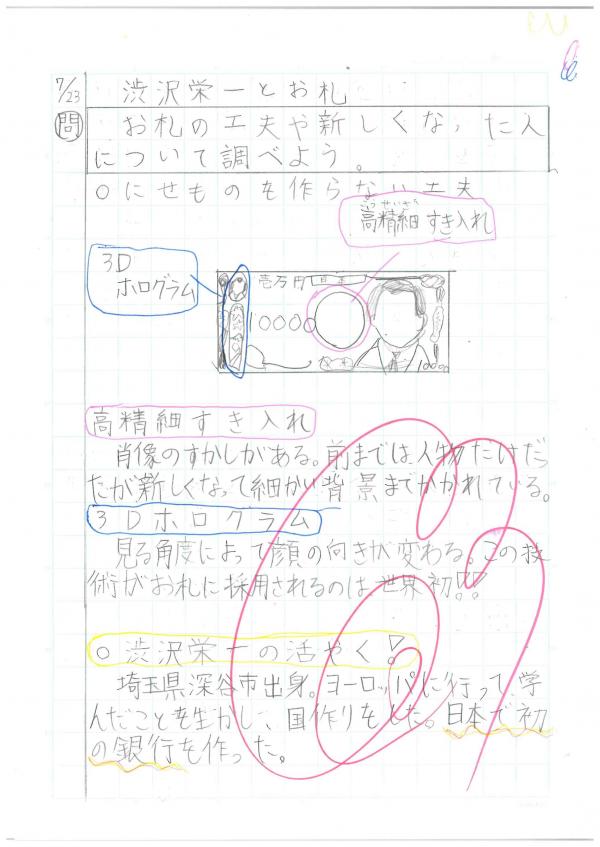 7/23 渋沢栄一とお札
問 お札の工夫や新しくなった人
について調べよう。
○にせものを作らない工夫
こうせいさい
高精細すき入れ
3D
ホログラム
壱万円
10000
10000
高精細すき入れ
肖像のすかしがある。前までは人物だけだっ
たが新しくなって細かい背景までかかれている。
3Dホログラム
見る角度によって顔の向きが変わる。この技
術がお札に採用されるのは世界初!!
○渋沢栄一の活やく!
埼玉県深谷市出身。ヨーロッパに行って、学
んだことを生かし、国作りをした。日本で初
の銀行を作った。